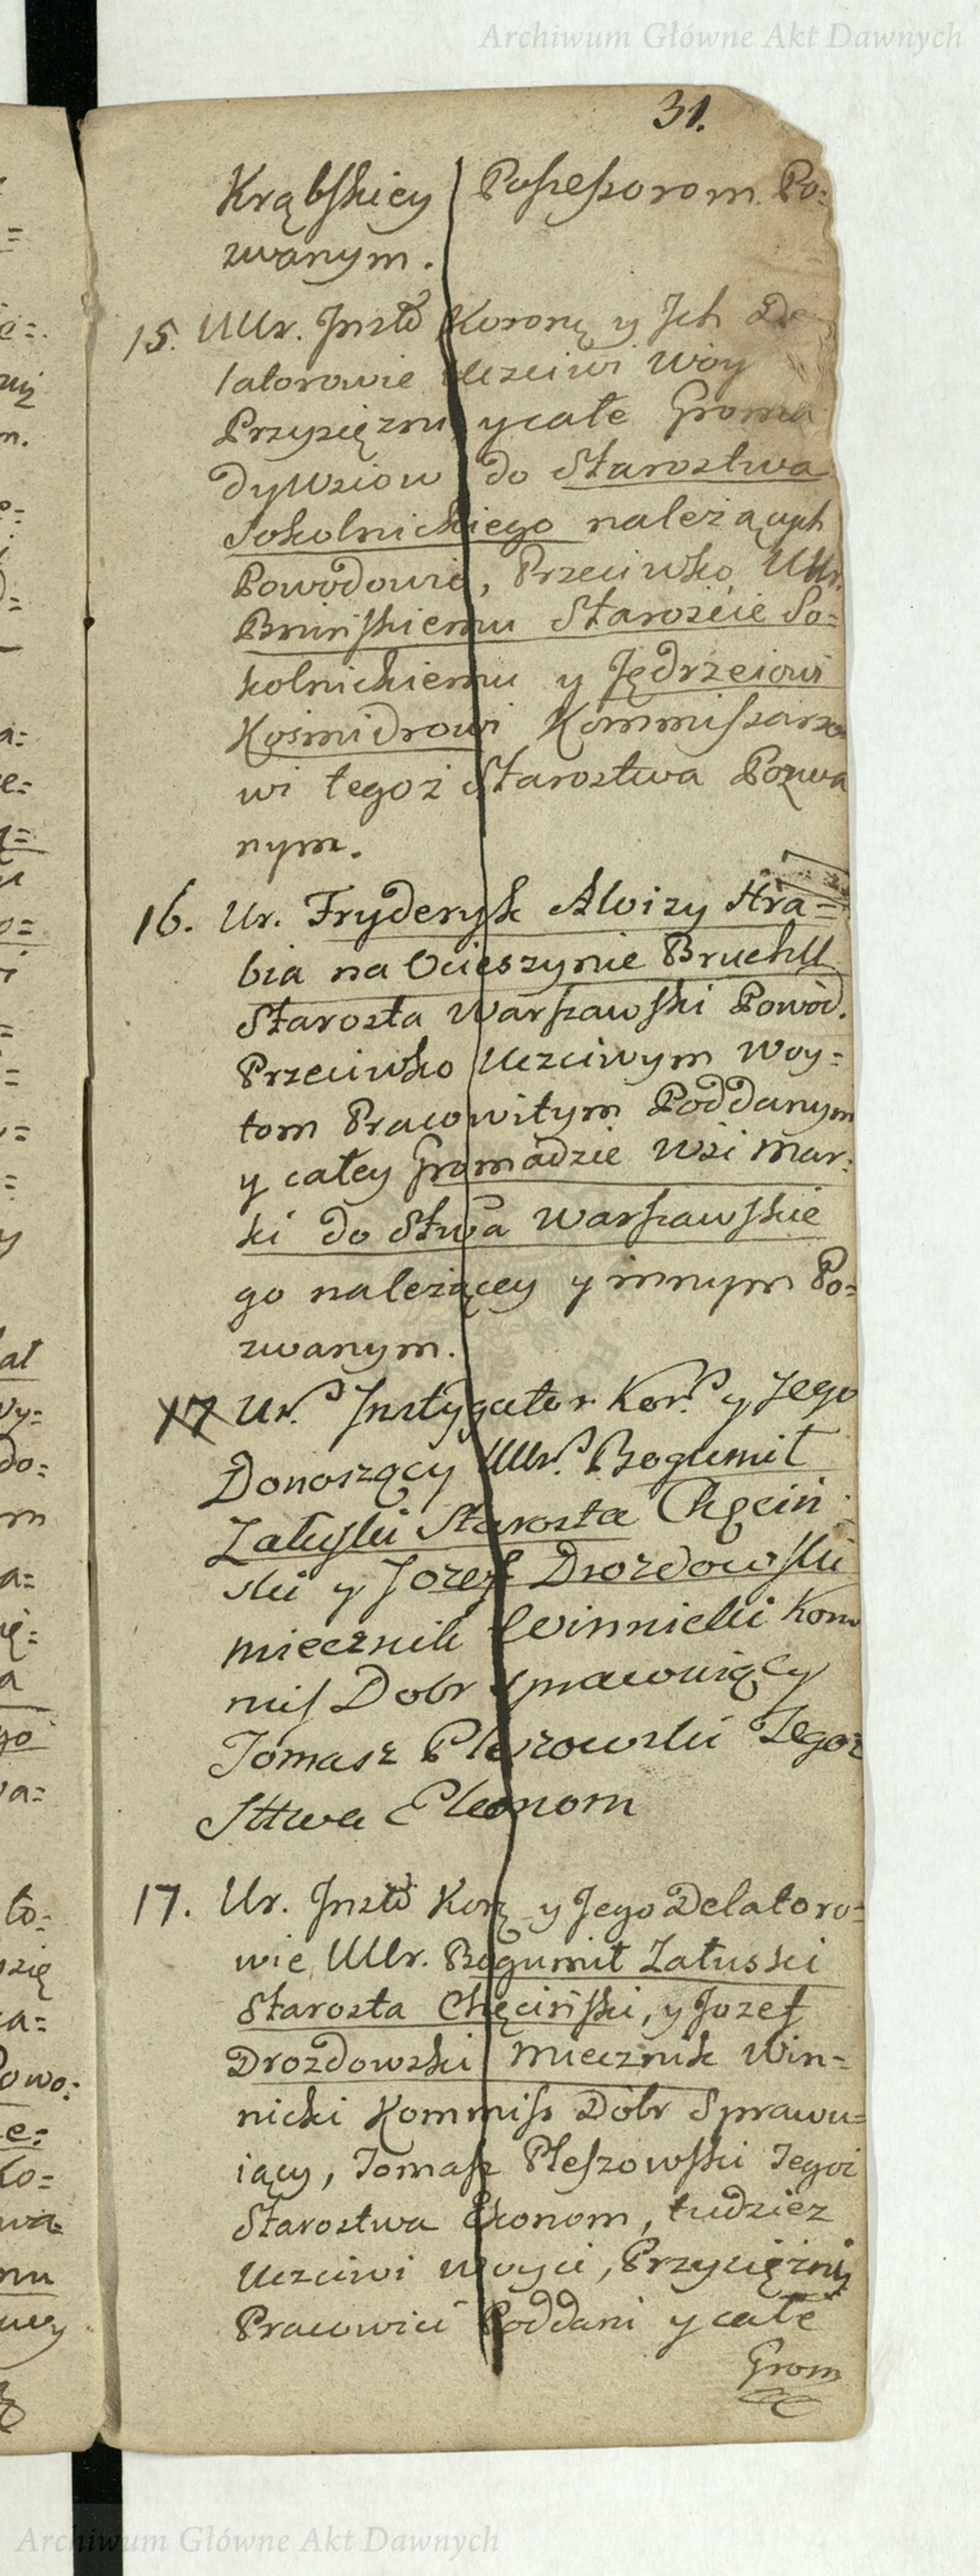 Archiwum Główne Akt Dawnych
31.
Krąbskiey Possessorom Po:
zwanym.
15. UUr. Insto Koronę y Jch De
latorowie Uczciwi Woy
Przysięzni y całe Groma
dy Wsiow do Starostwa
Sokolnickiego należących
Powodowie, Przeciwko UUr.
Bnińskiemu Starościе So=
kolnickiemu y Jędrzeiowi
Kośmidrowi Kommissarzo
wi tegoż Starostwa Pozwa
nym.
16. Ur. Fryderyk Aloizy Hra=
bia na Ocieszynie Bruehll
Starosta Warszawski Powód.
Przeciwko Uczciwym Woy=
tom Pracowitym Poddanym
y całey Gromadzie Wsi Mar:
ki do Stwa Warszawskie
go należącey y innym Po=
zwanym.
17 Ur. Instygator Kor. y Jego
Donoszący UUr. Bogumił
Załuski Starosta Chęciń
ski y Jozef Drozdowski
miecznik Winnicki Kom
mis Dobr sprawuiący
Tomasz Pleszowski Tegoz
Sttwa Ekonom
17. Ur. Insto Korę y Jego Delatoro=
wie UUr. Bogumił Załuski
Starosta Chęciński, y Jozef
Drozdowski Miecznik Win=
nicki Kommiss Dobr Sprawu=
iący, Tomasz Pleszowski Tegoż
Starostwa Ekonom, tudziez
Uczciwi Woyci, Przysięzni
Pracowici Poddani y całe
Grom
Archiwum Główne Akt Dawnych